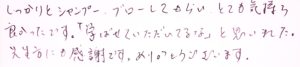 しっかりとシャンプー、ブローしてもらい、とても気持ち
良かったです。「学ばせていただいてるな」と思いました。
先生方にも感謝です。ありがとうございます。